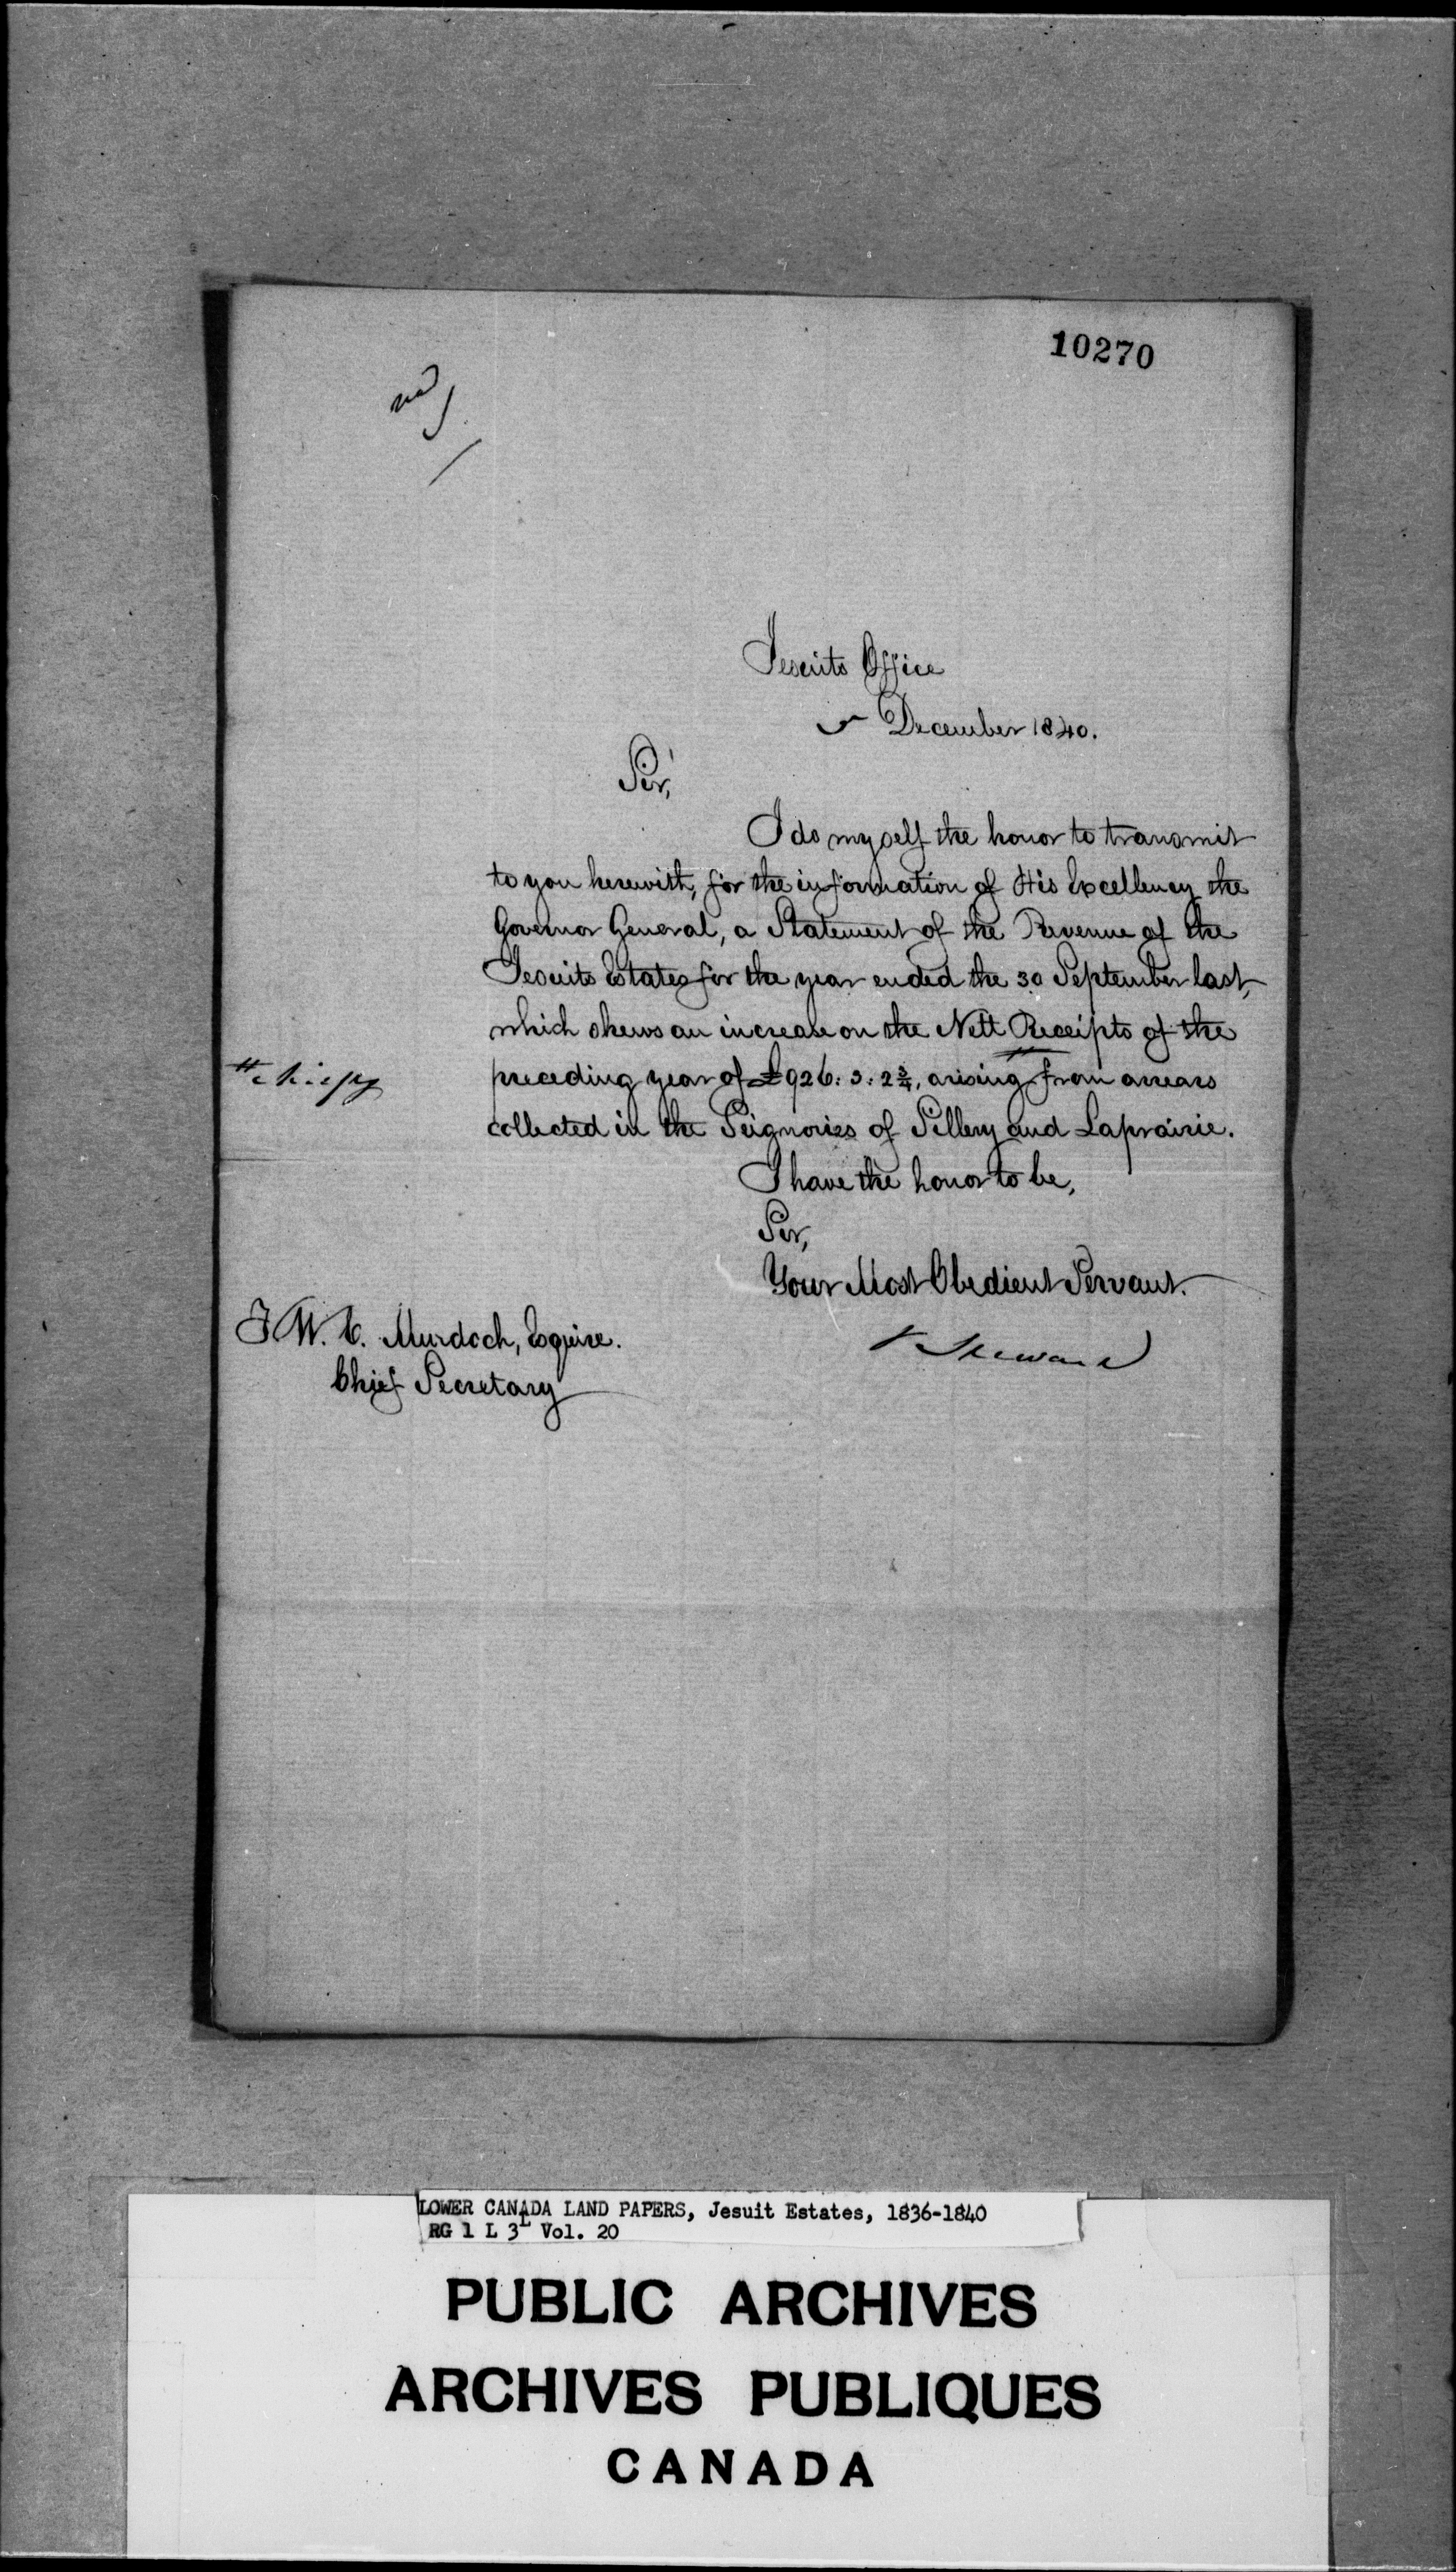 10270
Jesuits Office
December 1840.
Sir,
I do myself the honor to transmit
to you herewith, for the information of His Excellency the
Governor General, a Statement of the Revenue of the
Jesuits Estates for the year ended the 30 September last,
which shews an increase on the Nett Receipts of the
preceding year of £926: 3: 2¾, arising from arrears
collected in the Seignories of Sillery and Laprairie.
I have the honor to be,
Sir,
Your Most Obedient Servant.
Steward
T. W. C. Murdoch, Esquire.
Chief Secretary
LOWER CANADA LAND PAPERS, Jesuit Estates, 1836-1840
RG 1 L 3L Vol. 20
PUBLIC ARCHIVES
ARCHIVES PUBLIQUES
CANADA